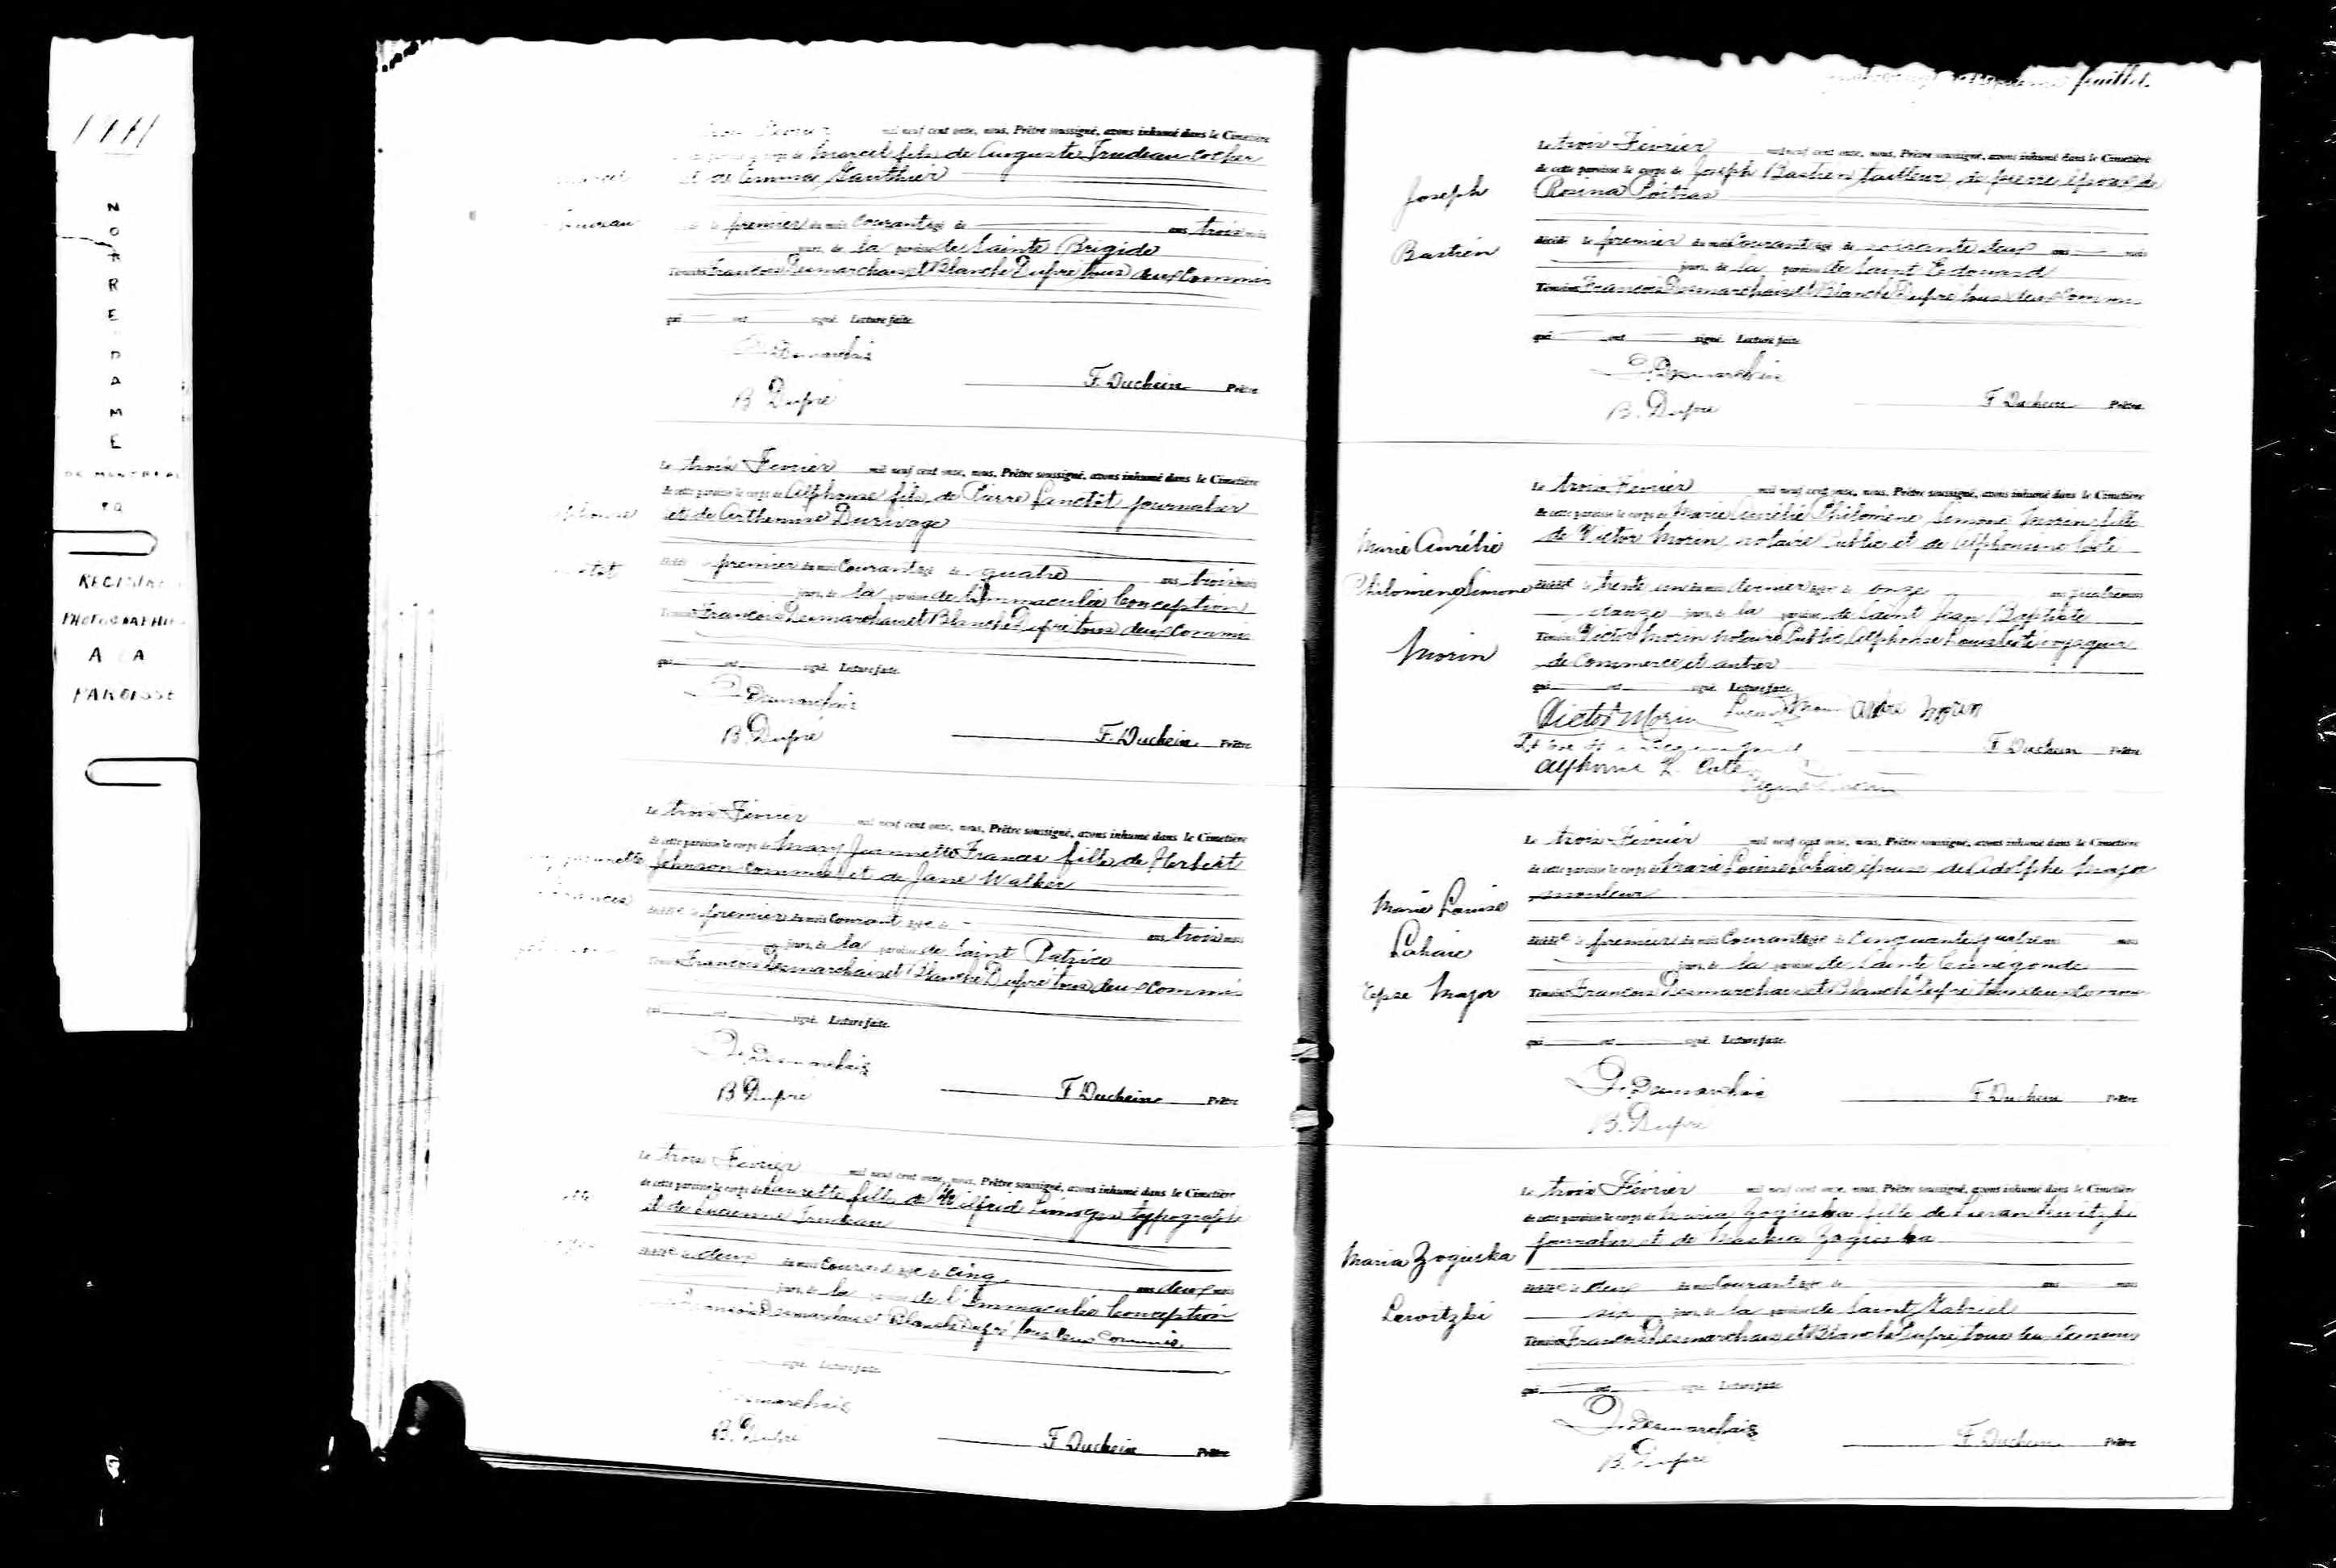 1911
NOTRE DAME
DE MONTREAL
REGISTRE
PHOTOGRAPHIE
A LA
PAROISSE
mil neuf cent onze, nous, Prêtre soussigné, avons inhumé dans le Cimetière
Marcel fils de Auguste Trudeau cocher
et de Emma Gauthier
le premier du mois courant âgé de ans trois mois
jours, de la paroisse de Sainte Brigide
Témoins François Desmarchais et Blanche Dufré tous deux commis
qui ont signé. Lecture faite.
Desmarchais
B. Dufré
F. Duchein Prêtre
Le trois Fevrier mil neuf cent onze, nous, Prêtre soussigné, avons inhumé dans le Cimetière
de cette paroisse le corps de Alphonse fils de Pierre Lanctôt journalier
et de Arthemise Durivage
premier du mois courant âgé de quatre ans trois mois
jours, de la paroisse de l'Immaculée Conception
Témoins François Desmarchais et Blanche Dufré tous deux commis
qui ont signé. Lecture faite.
Desmarchais
B. Dufré
F. Duchein Prêtre
Le trois Fevrier mil neuf cent onze, nous, Prêtre soussigné, avons inhumé dans le Cimetière
de cette paroisse le corps de Mary Jeannette Frances fille de Herbert
Johnson commis et de Jane Walker
le premier du mois courant âgée de ans trois mois
jours, de la paroisse de Saint Patrice
François Desmarchais et Blanche Dufré tous deux commis
signé. Lecture faite.
Desmarchais
B. Dufré
F. Duchein Prêtre
Le trois Fevrier mil neuf cent onze, nous, Prêtre soussigné, avons inhumé dans le Cimetière
de cette paroisse le corps de Laurette fille de Wilfrid Limoges typographe
et de Lucienne Trudeau
le deux du mois courant âgée de cinq ans deux mois
jours, de la paroisse de l'Immaculée Conception
François Desmarchais et Blanche Dufré tous deux commis
signé. Lecture faite.
Desmarchais
B. Dufré
F. Duchein Prêtre
feuillet.
Joseph
Bastien
Le trois Février mil neuf cent onze, nous, Prêtre soussigné, avons inhumé dans le Cimetière
de cette paroisse le corps de Joseph Bastien tailleur de pierre époux de
Rosina Poitras
décédé le premier du mois courant âgé de soixante deux ans mois
jours, de la paroisse de Saint Edouard
Témoins François Desmarchais et Blanche Dufré tous deux commis
qui ont signé. Lecture faite.
Desmarchais
B. Dufré
F. Duchein Prêtre
Marie Aurélie
Philomène Simone
Morin
Le trois Février mil neuf cent onze, nous, Prêtre soussigné, avons inhumé dans le Cimetière
de cette paroisse le corps de Marie Aurélie Philomène Simone Morin fille
de Victor Morin notaire Public et de Alphonsine Coté
décédée le trente un du mois dernier âgée de onze ans quatre mois
jours, de la paroisse de Saint Jean Baptiste
Témoins Victor Morin notaire Public Alphonse Louis Coté voyageur
de Commerce et autres
qui ont signé. Lecture faite.
Victor Morin Lucien Morin André Morin
F. Duchein Prêtre
Alphonse L. Coté
Marie Louise
Lahaie
Epse Major
Le trois Février mil neuf cent onze, nous, Prêtre soussigné, avons inhumé dans le Cimetière
de cette paroisse le corps de Marie Louise Lahaie épouse de Adolphe Major
mouleur
décédée le premier du mois courant âgée de cinquante quatre ans mois
jours, de la paroisse de Sainte Cunegonde
Témoins François Desmarchais et Blanche Dufré tous deux commis
qui ont signé. Lecture faite.
Desmarchais
B. Dufré
F. Duchein Prêtre
Maria Zogieska
Lewitzki
Le trois Février mil neuf cent onze, nous, Prêtre soussigné, avons inhumé dans le Cimetière
de cette paroisse le corps de Maria Zogieska fille de Lewitzki
journalier et de Zogieska
décédée le deux du mois courant âgée de ans mois
six jours, de la paroisse de Saint Gabriel
Témoins François Desmarchais et Blanche Dufré tous deux commis
qui ont signé. Lecture faite.
Desmarchais
B. Dufré
F. Duchein Prêtre